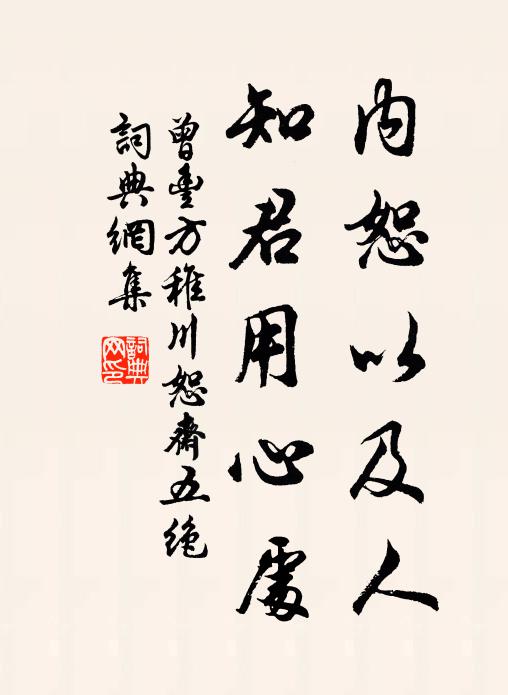 内恕以及人
知君用心處
曾豐方稚川恕齋五絶
詞典網集
詞典
网印